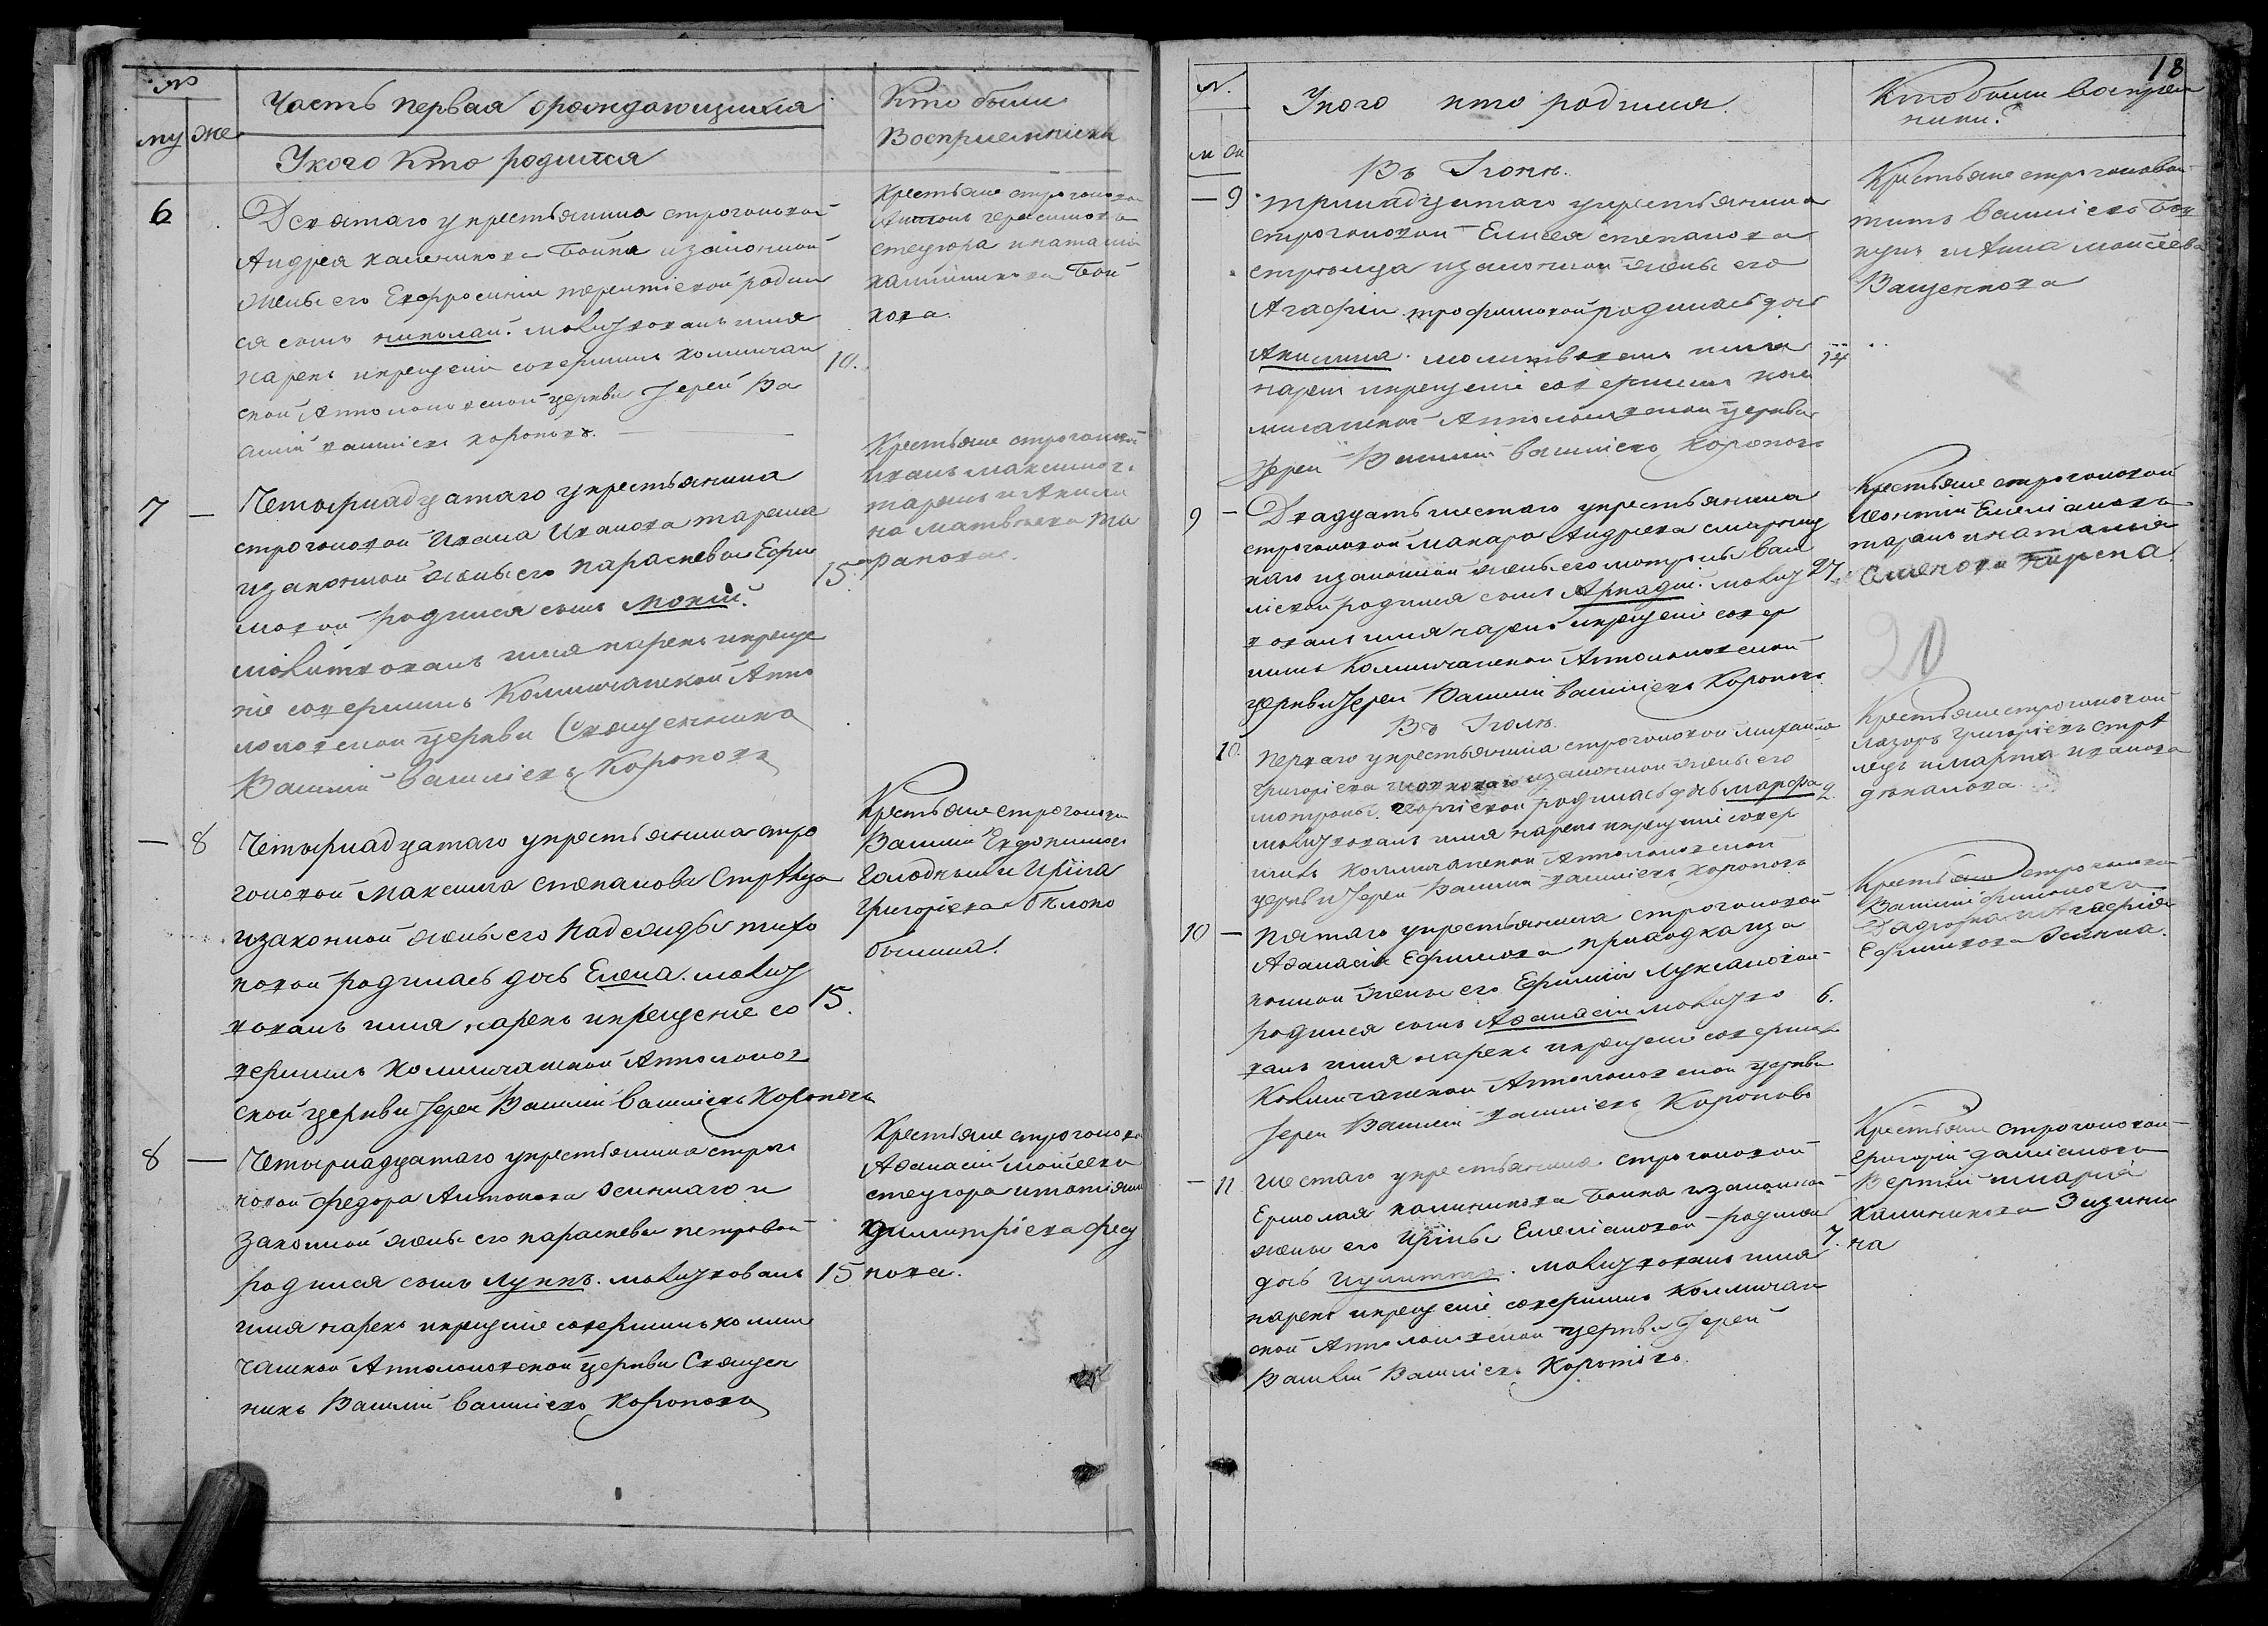 №
му же
Часть первая ораждающихся
Кто были
Восприемники
У кого Кто родился
6
Десятаго у крестьянина строгоновой
Андрея калиникова Бойка и законной
жены его Евфросинии терентіевой родил
ся сынъ николай. молитвовалъ имя
нарекъ и крещеніе совершилъ коммичан
10.
ской Апполоновской церкви Іерей Ва
силій васильевъ короповъ.
Крестьяне строгонова
Антонъ герасимовъ
стецюра и наталія
калинникова Бой
кова.
7 —
Четырнадцатаго у крестьянина
строгоновой Ивана Иванова тарана
и законной жены его парасковеи Ефи
15.
мовой родился сынъ мокій.
молитвовалъ имя нарекъ и креще
ніе совершилъ Коммичанской Аппо
лоновской церкви Священникъ
Василій васильевъ Короповъ
Крестьяне строгоновой
иванъ максимовъ
таранъ и Акили
на матвѣева та
ранова.
— 8
Четырнадцатаго у крестьянина стро
гоновой Максима степанова Стрѣльца
и законной жены его Надежды тихо
новой родилась дочь Елена. молит
15.
вовалъ имя нарекъ и крещеніе со
вершилъ коммичанской Апполонов
ской церкви Іерей Василій васильевъ Короповъ
Крестьяне строгоновой
Василій Евдокимовъ
Голодный и Ирина
Григоріева бѣлоко
былина.
8 —
Четырнадцатаго у крестьянина строго
новой федора Антонова осиннаго и
законной жены его парасковеи петровой
родился сынъ лукка. молитвовалъ
15
имя нарекъ и крещеніе совершилъ комми
чанской Апполоновской церкви Священ
никъ Василій васильевъ Короповъ
Крестьяне строгонова
Афанасій моисеевъ
стецюра и татіяна
димитріева фед
кова.
18
№.
м ж
У кого кто родился.
Кто были воспріем
ники?
Въ Іюнѣ.
— 9
тринадцатаго у крестьянина
строгоновой Елисея степанова
стрѣльца и законной жены его
Агафіи трофимовой родилась дочь
Акилина. молитвовалъ имя
14
нарекъ и крещеніе совершилъ ком
мичанской Апполоновской церкви
Іерей Василій васильевъ Короповъ
Крестьяне строгоновой
титъ васильевъ
и Анна моисеева
Ващенкова
9 —
Двадцать шестаго у крестьянина
строгоновой макара Андреева смирниц
каго и законной жены его мотроны васи
ліевой родился сынъ Аркадій. молит
27.
вовалъ имя нарекъ и крещеніе совер
шилъ Коммичанской Апполоновской
церкви Іерей Василій васильевъ Короповъ.
Крестьяне строгоновой
леонтій Емеліановъ
таранъ и наталія
20
Въ Іюлѣ.
10.
Перваго у крестьянина строгоновой михаила
григоріева и законной жены его
мотроны родилась дочь марфа
2.
молитвовалъ имя нарекъ и крещеніе совер
шилъ Коммичанской Апполоновской
церкви Іерей Василій васильевъ короповъ
Крестьяне строгоновой
лазарь григоріевъ стрѣ
лецъ и марта иванова
дѣканова
10 —
пятаго у крестьянина строгоновой
Афанасія Ефимова приходка и за
конной жены его Ефиміи лукіановой
родился сынъ Афанасій молитво
6.
валъ имя нарекъ и крещеніе совершилъ
Коммичанской Апполоновской церкви
Іерей Василій васильевъ Короповъ
Крестьяне строгоновой
Василій
и Агафія
Ефимова Осиння.
— 11
шестаго у крестьянина строгоновой
Ермолая калиникова Бойка и законной
жены его Ірины Емеліановой родилась
7.
дочь иулитта. молитвовалъ имя
нарекъ и крещеніе совершилъ Коммичан
ской Апполоновской церкви Іерей
Василій Васильевъ. Короповъ.
Крестьяне строгоновой
григорій даніиловъ
Вертій и марія
калиникова Зизини
на